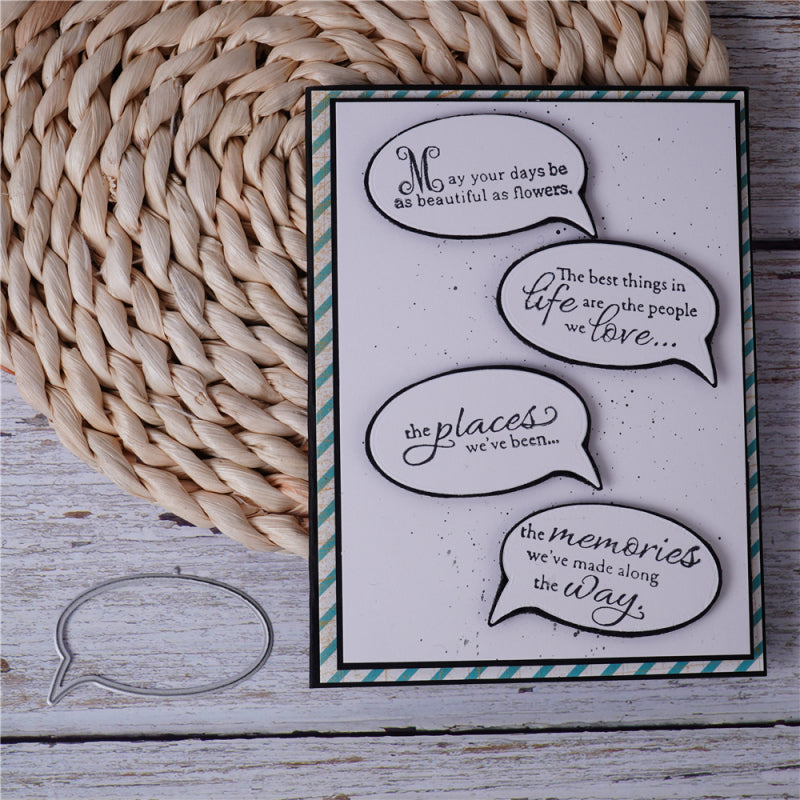 May your days be
as beautiful as flowers.
The best things in
life are the people
we love...
the places
we've been...
the memories
we've made along
the way.